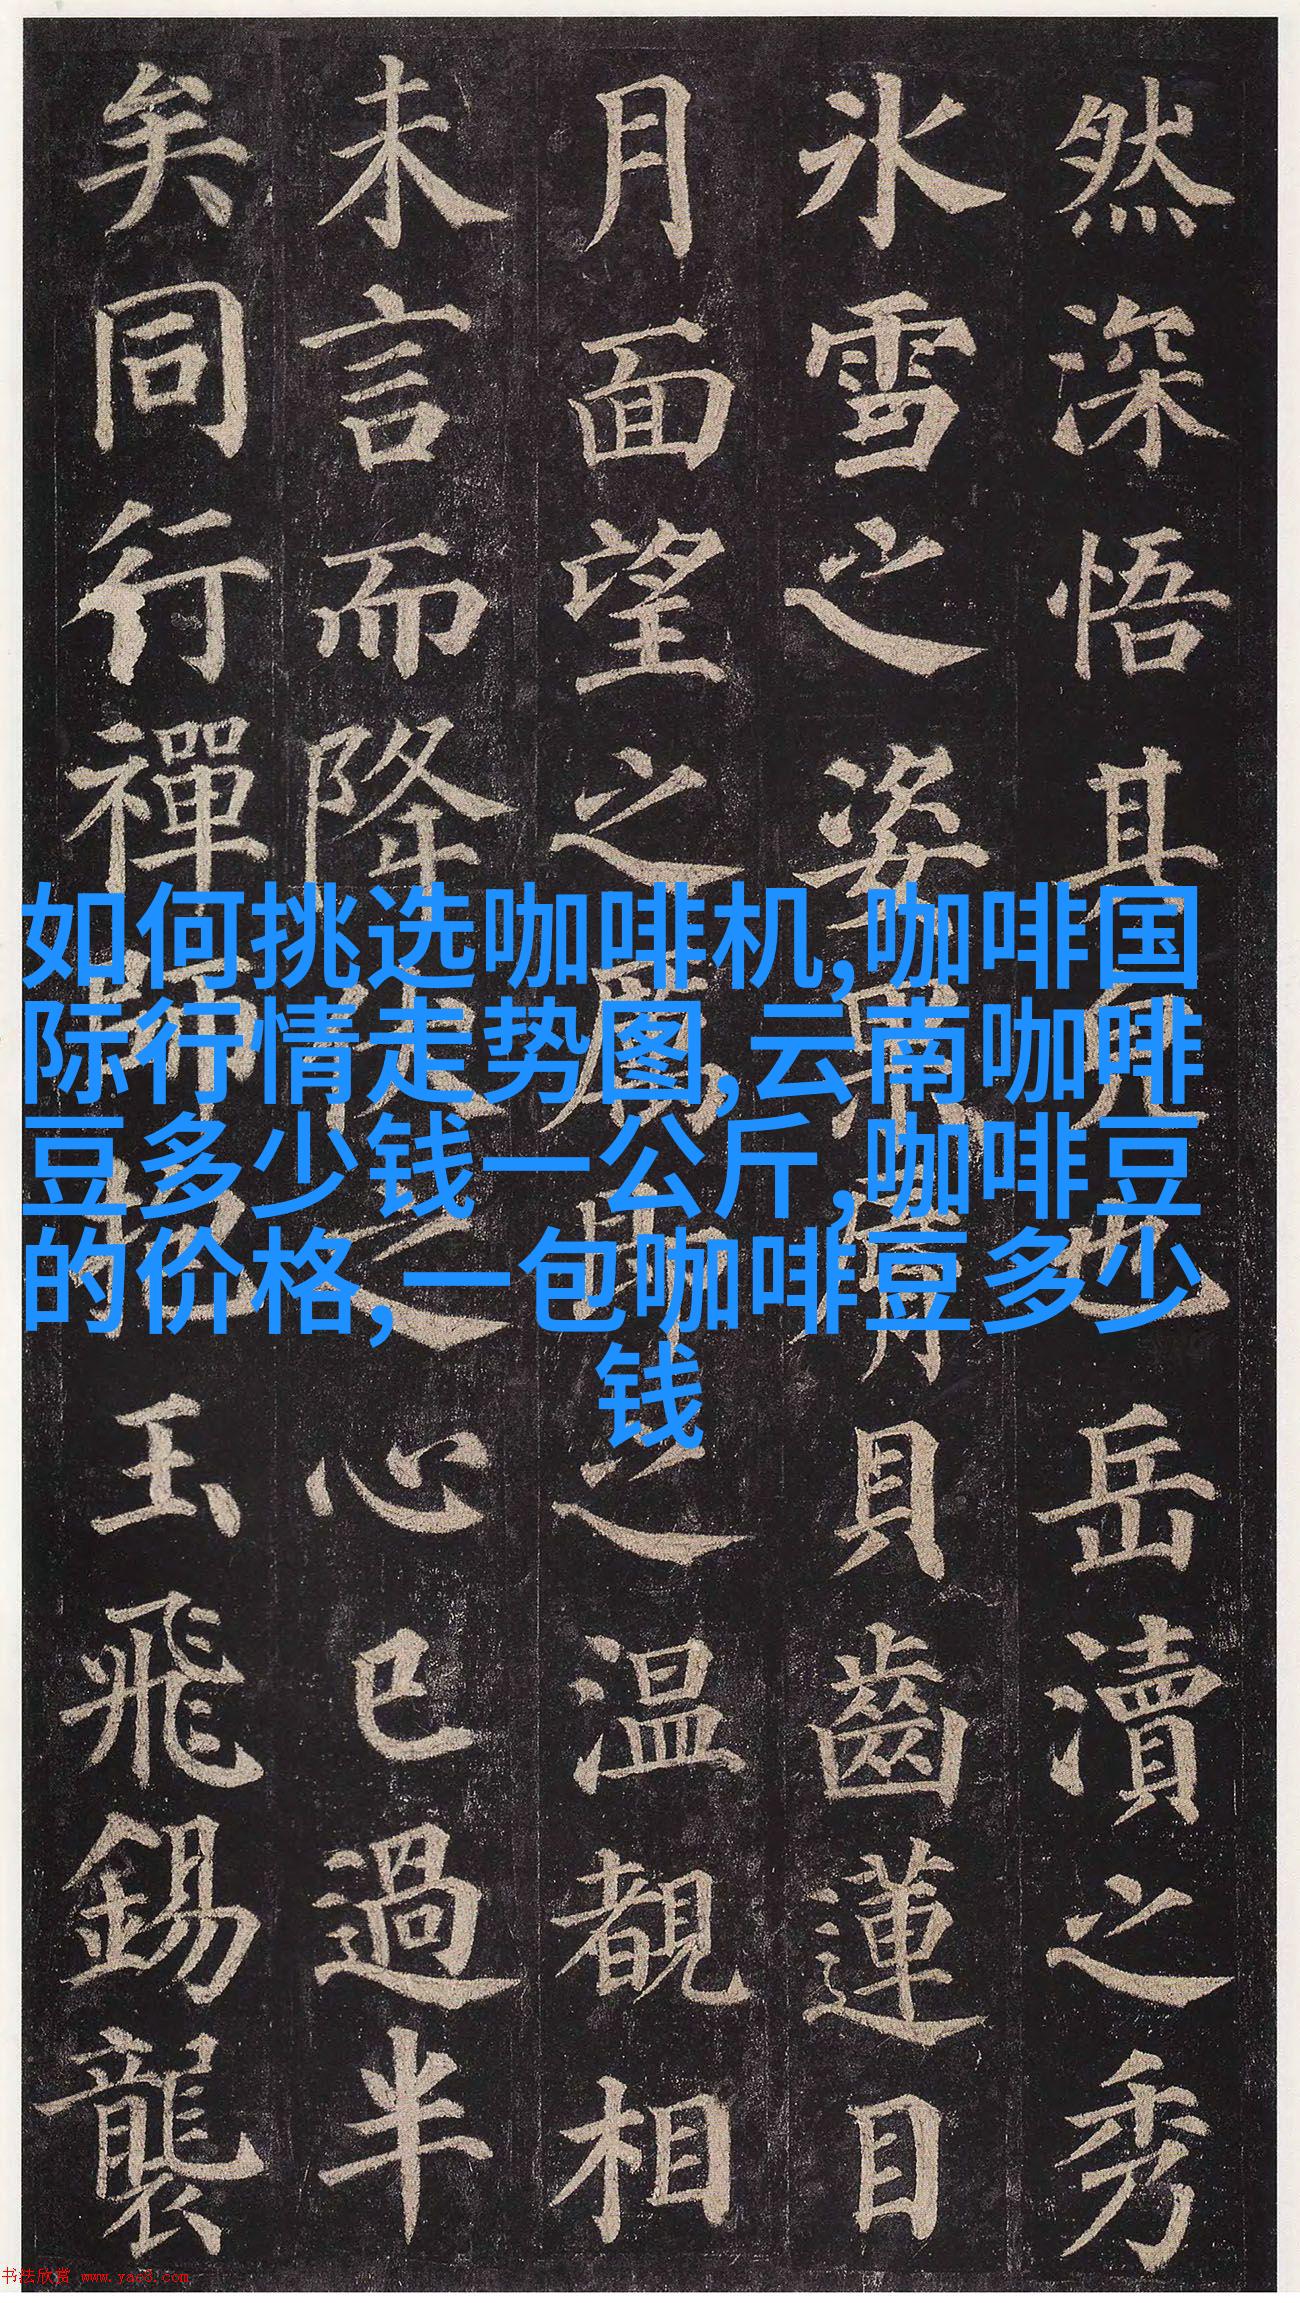 然深悟其見也岳瀆之秀
氷雪之姿果脣貝齒蓮目
月面望之厲即之温覩相
未言而降伏之心已過半
矣同行禪師抱玉飛錫襲
如何挑选咖啡机,咖啡国
际行情走势图,云南咖啡
豆多少钱一公斤,咖啡豆
的价格,一包咖啡豆多少
钱
书法欣赏 www.yac8.com